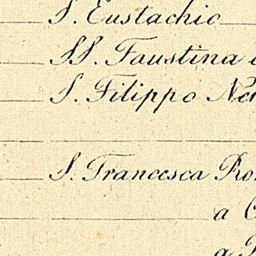 S. Eustachio
SS. Faustina
S. Filippo
S. Francesca
a